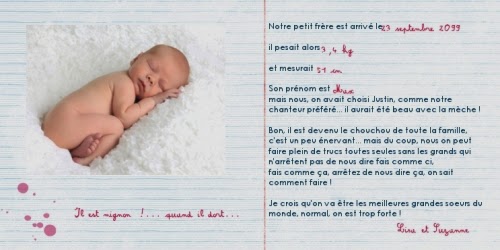 Il est mignon !... quand il dort...
Notre petit frère est arrivé le 23 septembre 2099
il pesait alors 3,4 kg
et mesurait 51 cm
Son prénom est Max
mais nous, on avait choisi Justin, comme notre
chanteur préféré... il aurait été beau avec la mèche !
Bon, il est devenu le chouchou de toute la famille,
c'est un peu énervant... mais du coup, nous on peut
faire plein de trucs toutes seules sans les grands qui
n'arrêtent pas de nous dire fais comme ci,
fais comme ça, arrêtez de nous dire ça, on sait
comment faire !
Je crois qu'on va être les meilleures grandes soeurs du
monde, normal, on est trop forte !
Lisa et Suzanne